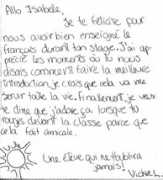 Allo Isabelle,
Je te félicite pour
nous avoir bien enseigné le
français durant ton stage. J'ai ap-
précié les moments où tu nous
disais comment faire la meilleure
introduction, je crois que cela va me
servir toute la vie. Finalement, je veux
te dire que j'adore ça lorsque tu
rougis durant la classe parce que
cela fait amicale.
Une élève qui ne t'oubliera
jamais!